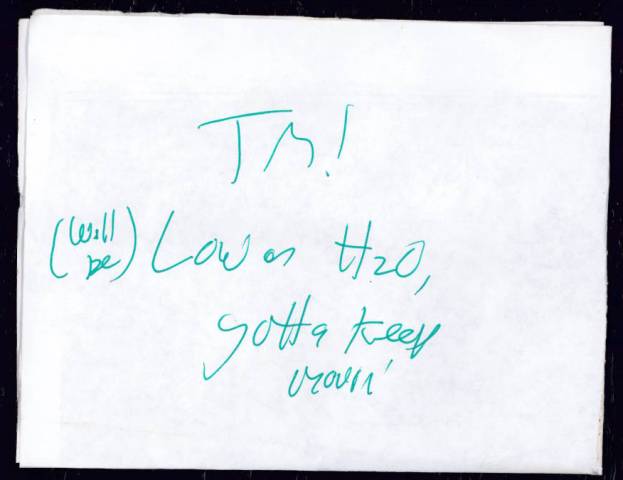 TM!
(Will be) Low on H2O,
gotta keep
movin'